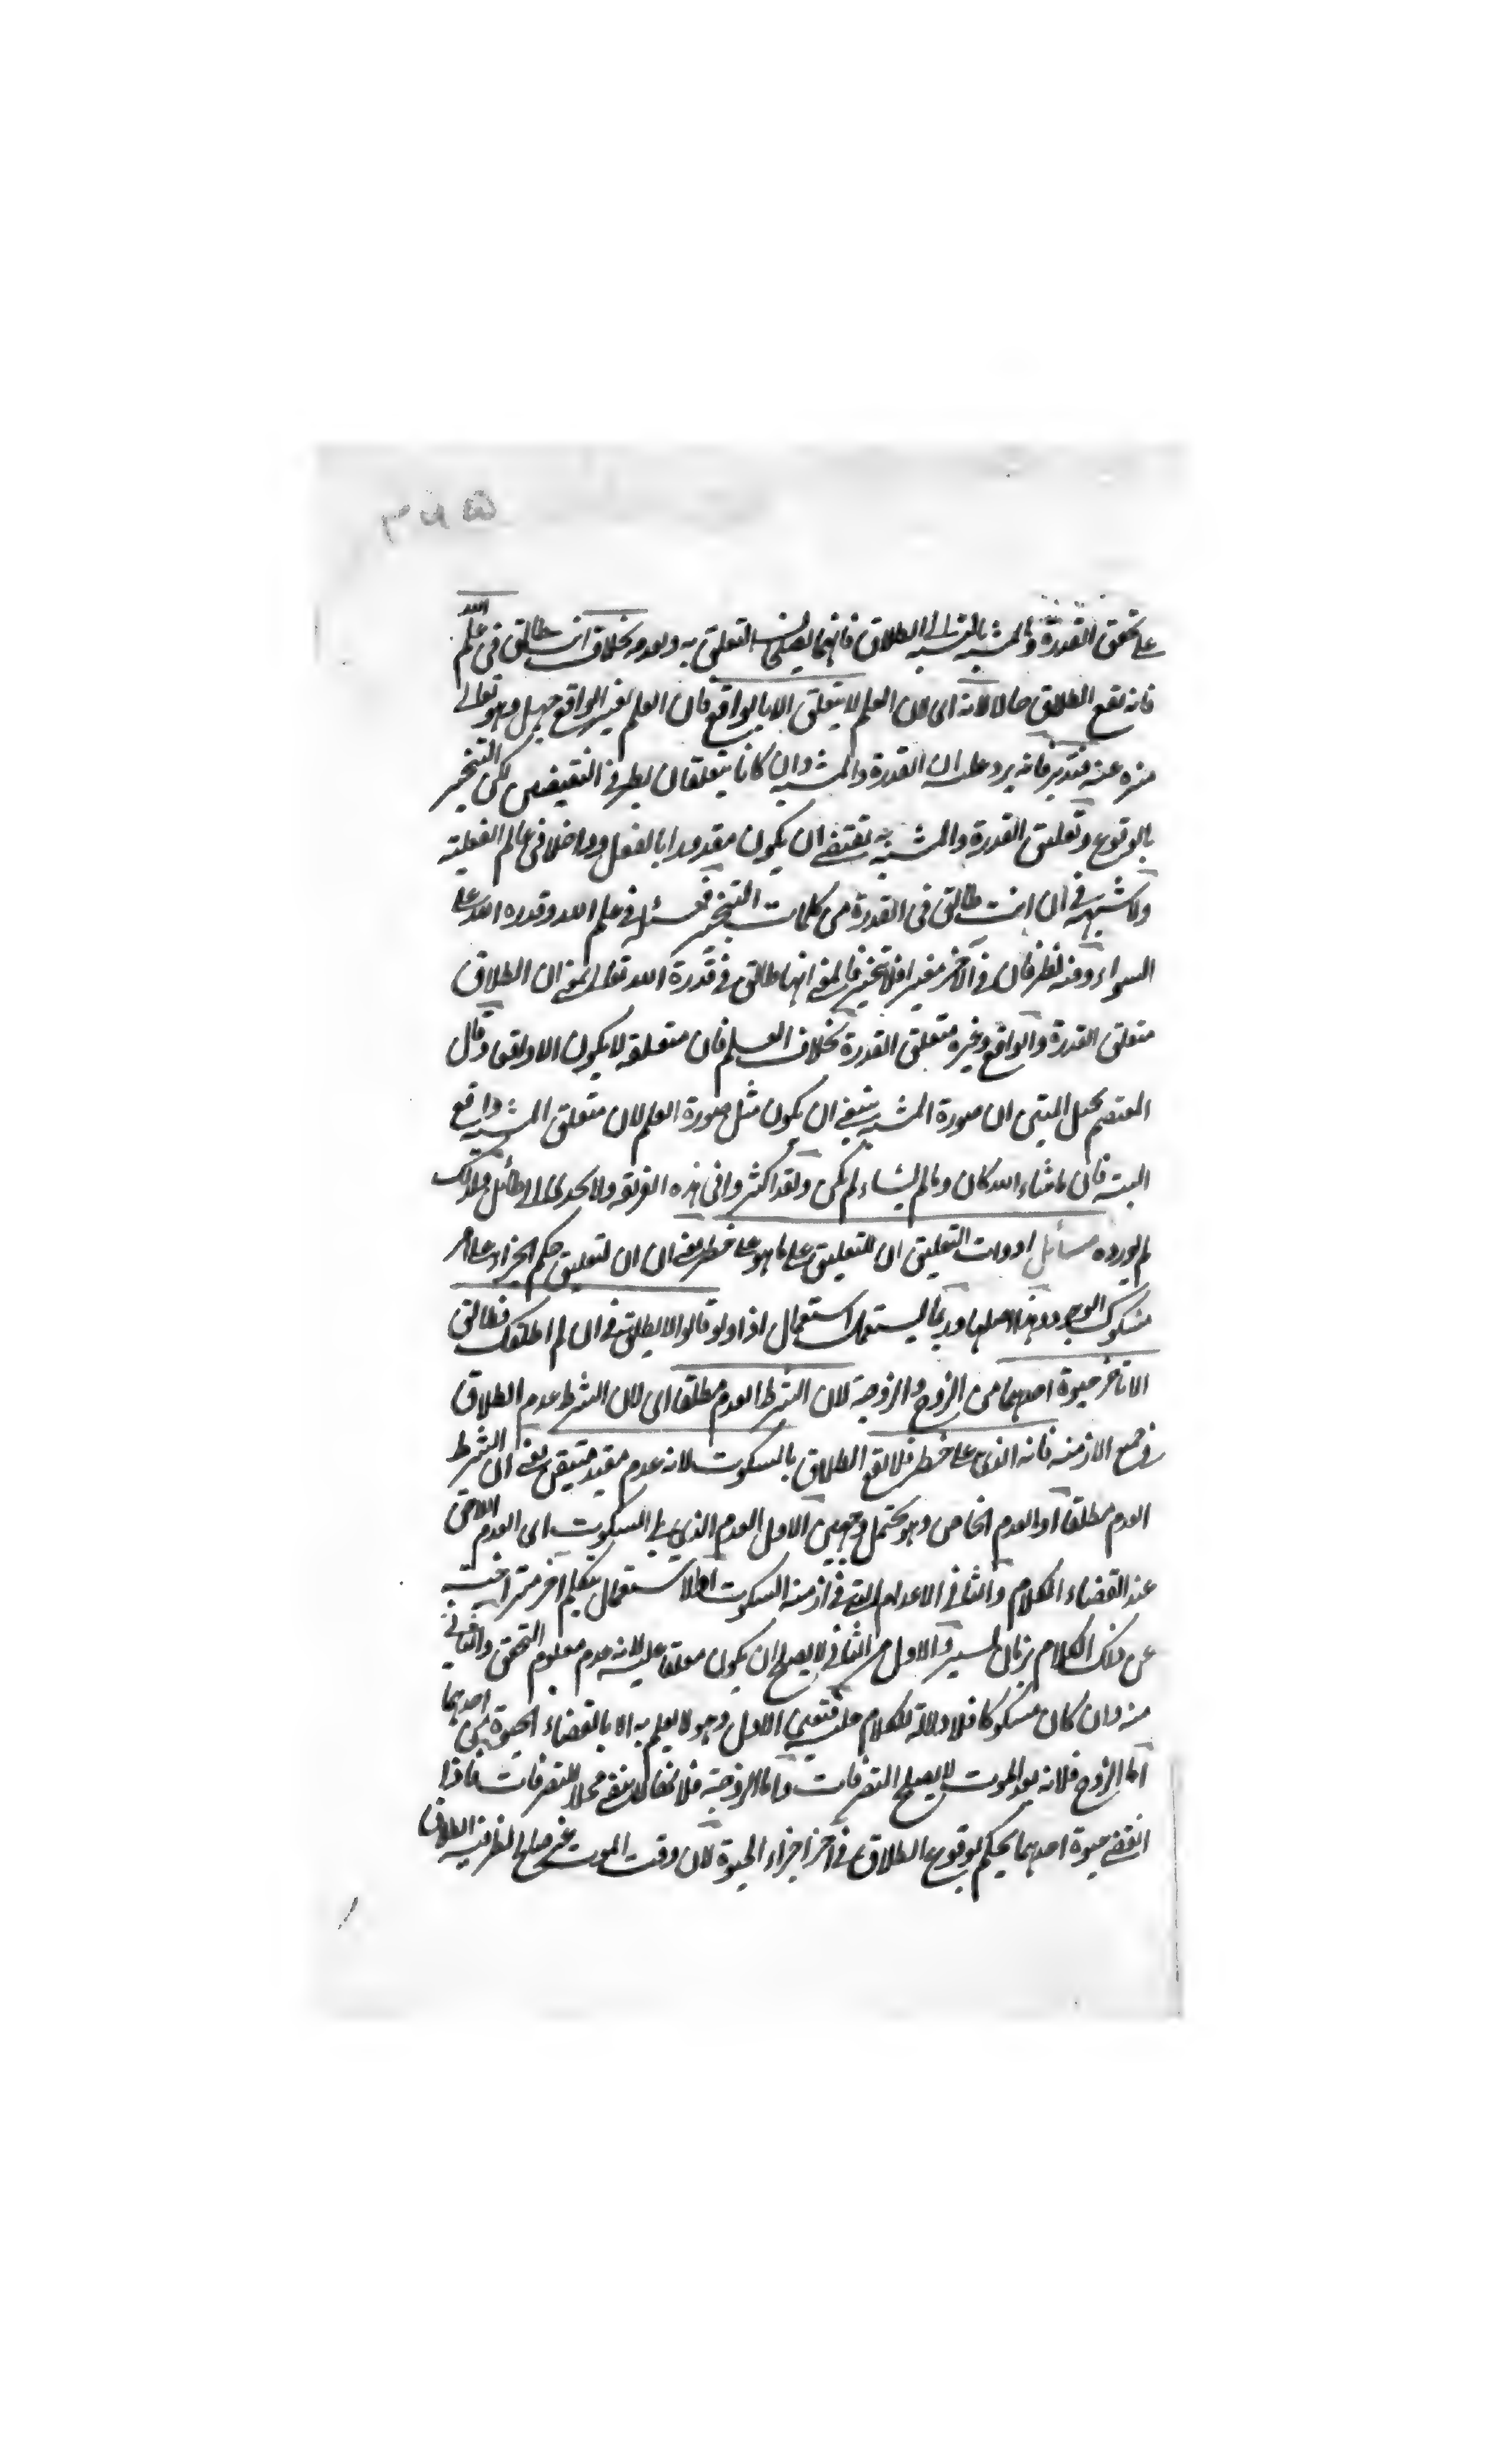 ٣٧٥
على تحقق القدرة والمشية بالنسبة الى الطلاق فانهما يصلحان التعلق به وبعدمه بخلاف انت طالق في علم الله
فانه يقع الطلاق حالا لانه اى لان العلم لا يتعلق الا بالواقع فان العلم بغير الواقع جهل وهو تعالى
منزه عنه فتدبر فانه يرد عليه ان القدرة والمشية وان كانا يتعلقان بطرفى النقيضين لكن التنجيز
بالوقوع وتعلق القدرة والمشية به يقتضى ان يكون مقدورا بالفعل وداخلا فى عالم الفعلية
ولا شبهة فى ان انت طالق فى القدرة من كلمات التنجيز فى علم الله وقدرة الله على
السواء وفيه نظر فان فى الآخر فالمعنى انها طالق فى قدرة الله تعالى بمعنى ان الطلاق
متعلق القدرة والواقع وغيره متعلق القدرة بخلاف العلم فان متعلقه لا يكون الا واقعا وقال
المعتصم بحبل المتين ان صورة المشية ينبغى ان يكون مثل صورة العلم لان متعلق المشية واقع
البتة فان ما شاء الله كان وما لم يشاء لم يكن ولقد اكثروا فى هذه التفرقة ولا يجدى الى طائل ولذلك
لم نورده مسائل ادوات التعليق ان للتعليق على ما هو على خطر يعنى ان ان لتعليق حكم الجزاء على امر
مشكوك الوجود هذا اصلها وربما يستعمل استعمال اذا ولو قالوا لا يطلق فى ان لم اطلقك فطالق
الا بآخر حيوة احدهما من الزوج والزوجة لان الشرط العدم مطلقا اى لان الشرط عدم الطلاق
فى جميع الازمنة فانه الذى على خطر فلا يقع الطلاق بالسكوت لانه عدم مقيد متيقن يعنى ان الشرط
العدم مطلقا او العدم الخاص وهو يحتمل وجهين الاول العدم الذى يلى السكوت اى العدم اللاحق
عند انقضاء الكلام والثانى الاعدام التى فى ازمنة السكوت او الاستعمال بتكلم آخر متراخية
عن ذلك الكلام بزمان يسير والاول من الثانى لا يصلح ان يكون معلقا عليه لانه عدم معلوم التحقق والثانى
منه وان كان مشكوكا فلا دلالة للكلام عليه فتعين الاول وهو لا يعلم به الا بانقضاء الحيوة من احدهما
اما الزوج فلانه بعد الموت لا يصلح التصرفات واما الزوجة فلانها لا يبقى محلا للتصرفات فاذا
انقضى حيوة احدهما يحكم بوقوع الطلاق فى آخر اجزاء الحيوة لان وقت الموت غير صالح لظرفية الطلاق